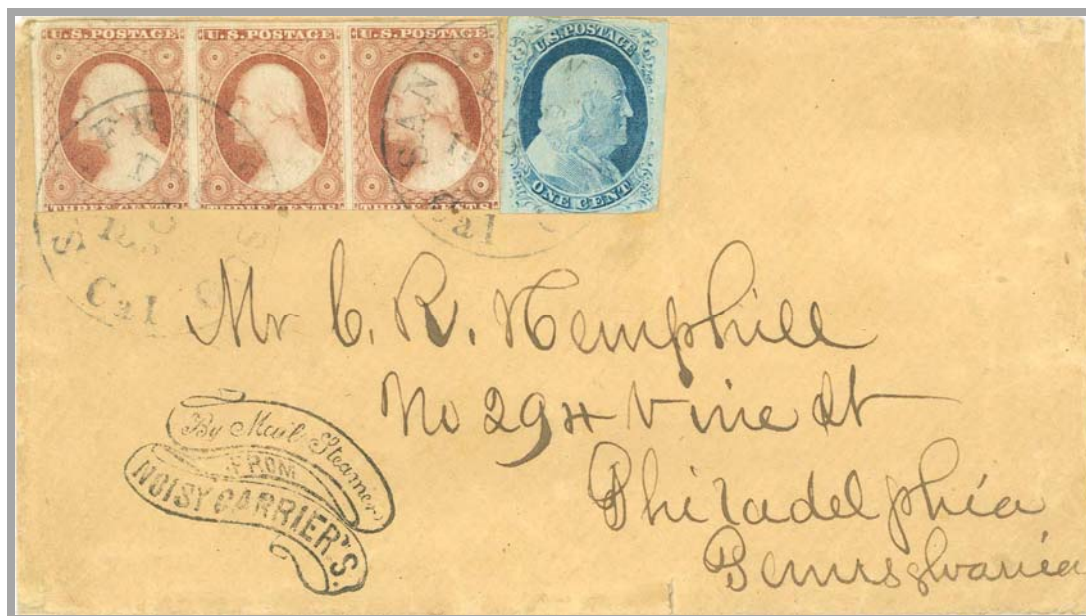 U.S.POSTAGE U.S.POSTAGE U.S.POSTAGE U.S.POSTAGE
THREE CENTS THREE CENTS THREE CENTS ONE CENT
SAN
Cal
Cal
Mr C. R. Hemphill
No 294 Vine St
Philadelphia
Pennsylvania
By Mail Steamers
FROM
NOISY CARRIER'S.